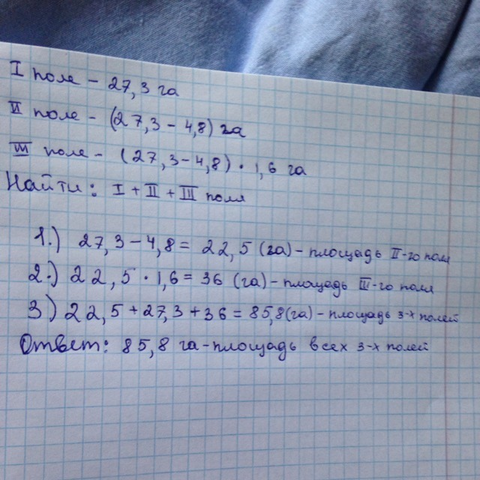 I поле - 27,3 га
II поле - (27,3 - 4,8) га
III поле - (27,3 - 4,8) · 1,6 га
Найти: I + II + III поля
1.) 27,3 - 4,8 = 22,5 (га) - площадь II-го поля
2.) 22,5 · 1,6 = 36 (га) - площадь III-го поля
3) 22,5 + 27,3 + 36 = 85,8 (га) - площадь 3-х полей
Ответ: 85,8 га - площадь всех 3-х полей